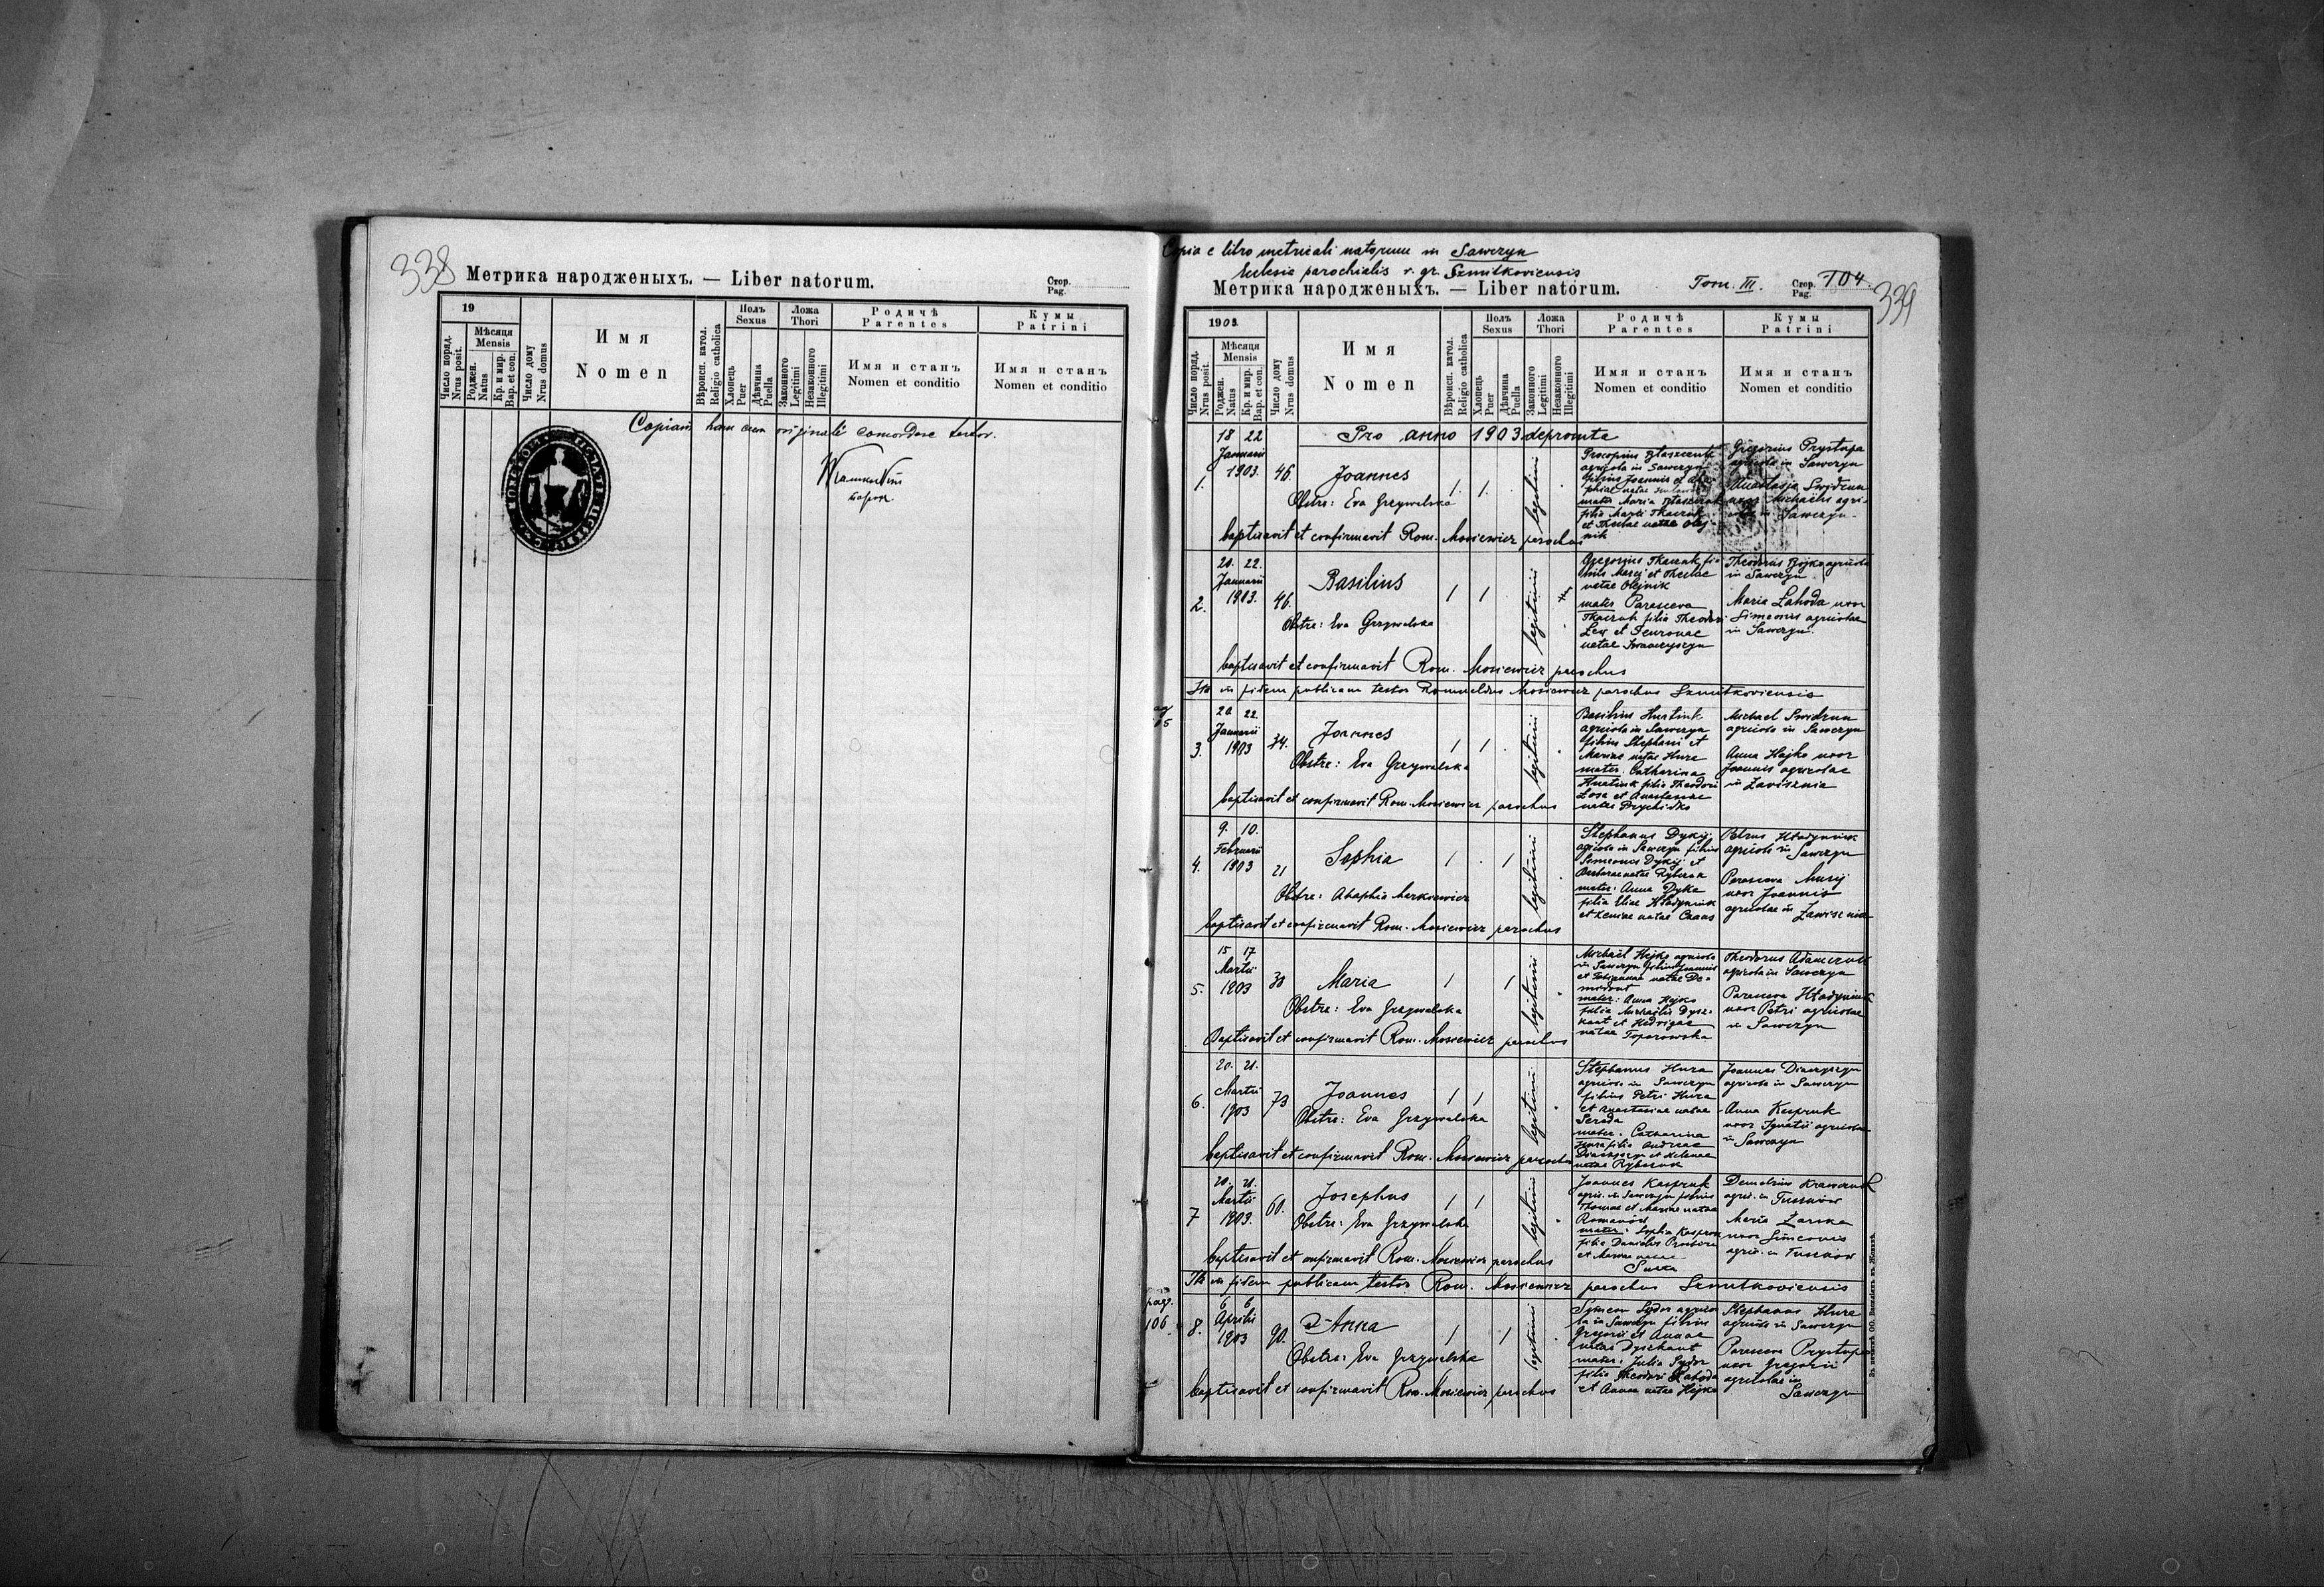 338
Метрика народженыхъ. — Liber natorum.
Стор.
Pag.
19
Число поряд.
Nrus posit.
Мѣсяця
Mensis
Роджен.
Natus
Кр. и мир.
Bap. et con.
Число дому
Nrus domus
Имя
Nomen
Вѣроисп. катол.
Religio catholica
Полъ
Sexus
Хлопець
Puer
Дѣвчина
Puella
Ложа
Thori
Законного
Legitimi
Незаконного
Illegitimi
Родичѣ
Parentes
Имя и станъ
Nomen et conditio
Кумы
Patrini
Имя и станъ
Nomen et conditio
Copiam hanc cum originali concordare testor.
Copia e libro metricali natorum in Sawczyn
Eclesia parochialis r. gr. Szmitkoviensis
Метрика народженыхъ. — Liber natorum.
Tom. III.
Стор.
Pag. 104.
339
1903.
Число поряд.
Nrus posit.
Мѣсяця
Mensis
Роджен.
Natus
Кр. и мир.
Bap. et con.
Число дому
Nrus domus
Имя
Nomen
Вѣроисп. катол.
Religio catholica
Полъ
Sexus
Хлопець
Puer
Дѣвчина
Puella
Ложа
Thori
Законного
Legitimi
Незаконного
Illegitimi
Родичѣ
Parentes
Имя и станъ
Nomen et conditio
Кумы
Patrini
Имя и станъ
Nomen et conditio
Pro anno 1903 depromta
1.
18 22
Januarii
1903.
46.
Joannes
Obstre: Eva Grzywalska
1. 1.
legitimi
agricola in Sawczyn
filius Joannis et
mater Maria
filia Marci Tkaczuk
et Theclae natae Olej-
nik
Gregorius Prystupa
agricola in Sawczyn
Anastasia Swidrun
uxor Michaelis agri-
colae in Sawczyn
baptisavit et confirmavit Rom. Mosiewicz parochus
2.
20. 22.
Januarii
1903.
46.
Basilius
Obstre: Eva Grzywalska
1 1
legitimi
Gregorius Tkaczuk fi-
lius Marci et Theclae
natae Olejnik
mater Parasceva
Tkaczuk filia Theodori
Lex et Feuronae
natae Iwanczyszyn
Theodorus Bojko agricola
in Sawczyn
Maria Lahoda uxor
Simeonis agricolae
in Sawczyn.
baptisavit et confirmavit Rom. Mosiewicz parochus
Ita in fidem publicam testor Romualdus Mosiewicz parochus Szmitkoviensis
pag.
105
3.
20 22.
Januarii
1903
34.
Joannes
Obstre: Eva Grzywalska
1 1
legitimi
Basilius Hnatiuk
agricola in Sawczyn
filius Stephani et
Mariae natae Hura
mater. Catharina
Hnatiuk filia Theodori
Losa et Anastasiae
Michael Swidrun
agricola in Sawczyn
Anna Hojko uxor
Joannis agricolae
in Zawisznia
baptisavit et confirmavit Rom. Mosiewicz parochus
4.
9. 10.
Februarii
1903
21
Sophia
Obstre: Ahaphia Markiewicz
1 1
legitimi
Stephanus Dykij
agricola in Sawczyn filius
Simeonis Dykij et
Barbarae natae Rybczuk
mater: Anna Dyka
filia Eliae Hladyniuk
et Xeniae natae Czaus
Petrus Hladyniuk
agricola in Sawczyn
Parasceva Musij
uxor Joannis
agricolae in Zawisznia
baptisavit et confirmavit Rom. Mosiewicz parochus
5.
15 17
Martii
1903
33
Maria
Obstre: Eva Grzywalska
1 1
legitimi
Michael Hojko agricola
in Sawczyn filius Joannis
mater: Anna Hojko
filia Michaelis
et Hedvigae
natae Toporowska
Theodorus Adamczuk
agricola in Sawczyn
Parasceva Hladyniuk
uxor Petri agricolae
in Sawczyn
Baptisavit et confirmavit Rom. Mosiewicz parochus
6.
20. 21.
Martii
1903
73
Joannes
Obstre: Eva Grzywalska
1 1
legitimi
Stephanus Hura
agricola in Sawczyn
filius Petri Hura
et Anastasiae natae
Sereda
mater. Catharina
Hura filia Andreae
Diaczyszyn et Helenae
natae Rybczuk
Joannes Diaczyszyn
agricola in Sawczyn
Anna Kaspruk
uxor Ignatii agricolae
in Sawczyn
baptisavit et confirmavit Rom. Mosiewicz parochus
7
20. 21.
Martii
1903.
60.
Josephus
Obstre: Eva Grzywalska
1 1
legitimi
Joannes Kaspruk
agric. in Sawczyn filius
Thomae et Mariae natae
Romanów
mater: Sophia Kaspruk
filia Danielis
et Mariae natae
Demetrius Krawczuk
agric. in Tuszków
Maria Zarska
uxor Simeonis
agric. in Tuszków
baptisavit et confirmavit Rom. Mosiewicz parochus
Ita in fidem publicam testor Rom. Mosiewicz parochus Szmitkoviensis
pag.
106
8.
6 6
Aprilis
1903
90.
Anna
Obstre: Eva Grzywalska
1 1
legitimi
Symeon Sydor agrico-
la in Sawczyn filius
Gregorii et Annae
natae Dyschant
mater: Julia Sydor
filia Theodori Lahoda
et Annae natae Hojko
Stephanus Hura
agricola in Sawczyn
Parasceva Prystupa
uxor Gregorii
agricolae in
Sawczyn
baptisavit et confirmavit Rom. Mosiewicz parochus
Въ печатнѣ ОО. Василіянъ въ Жовквѣ.